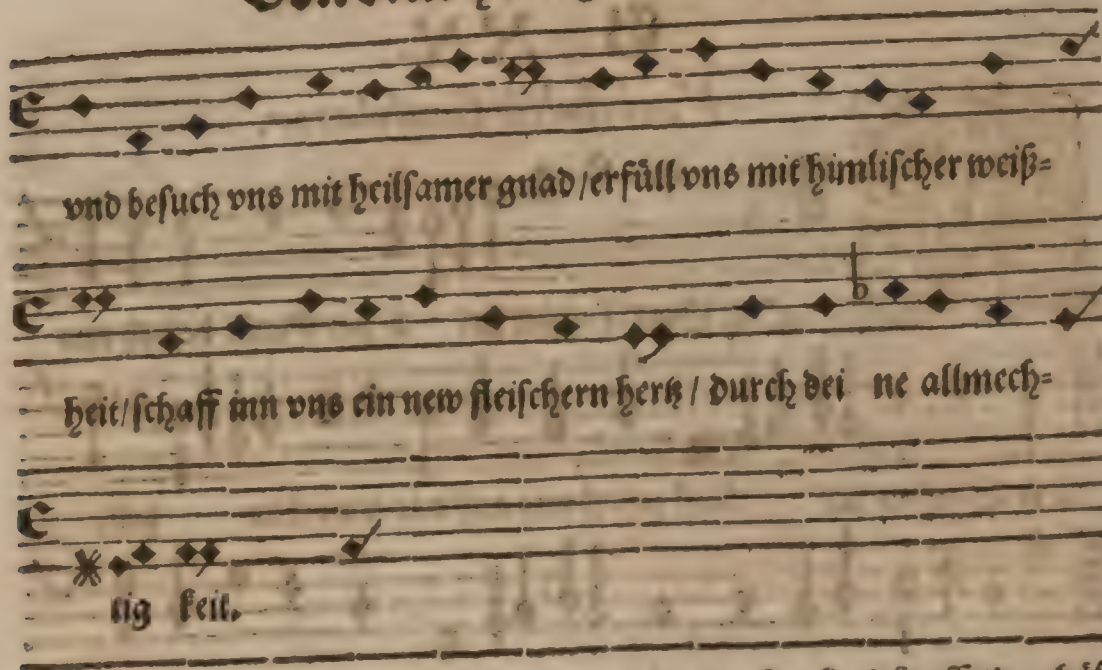 vnd besuch vns mit heilsamer gnad / erfüll vns mit himlischer weiß=
heit / schaff inn vns ein new fleischern hertz / durch dei ne allmech=
tig keit.